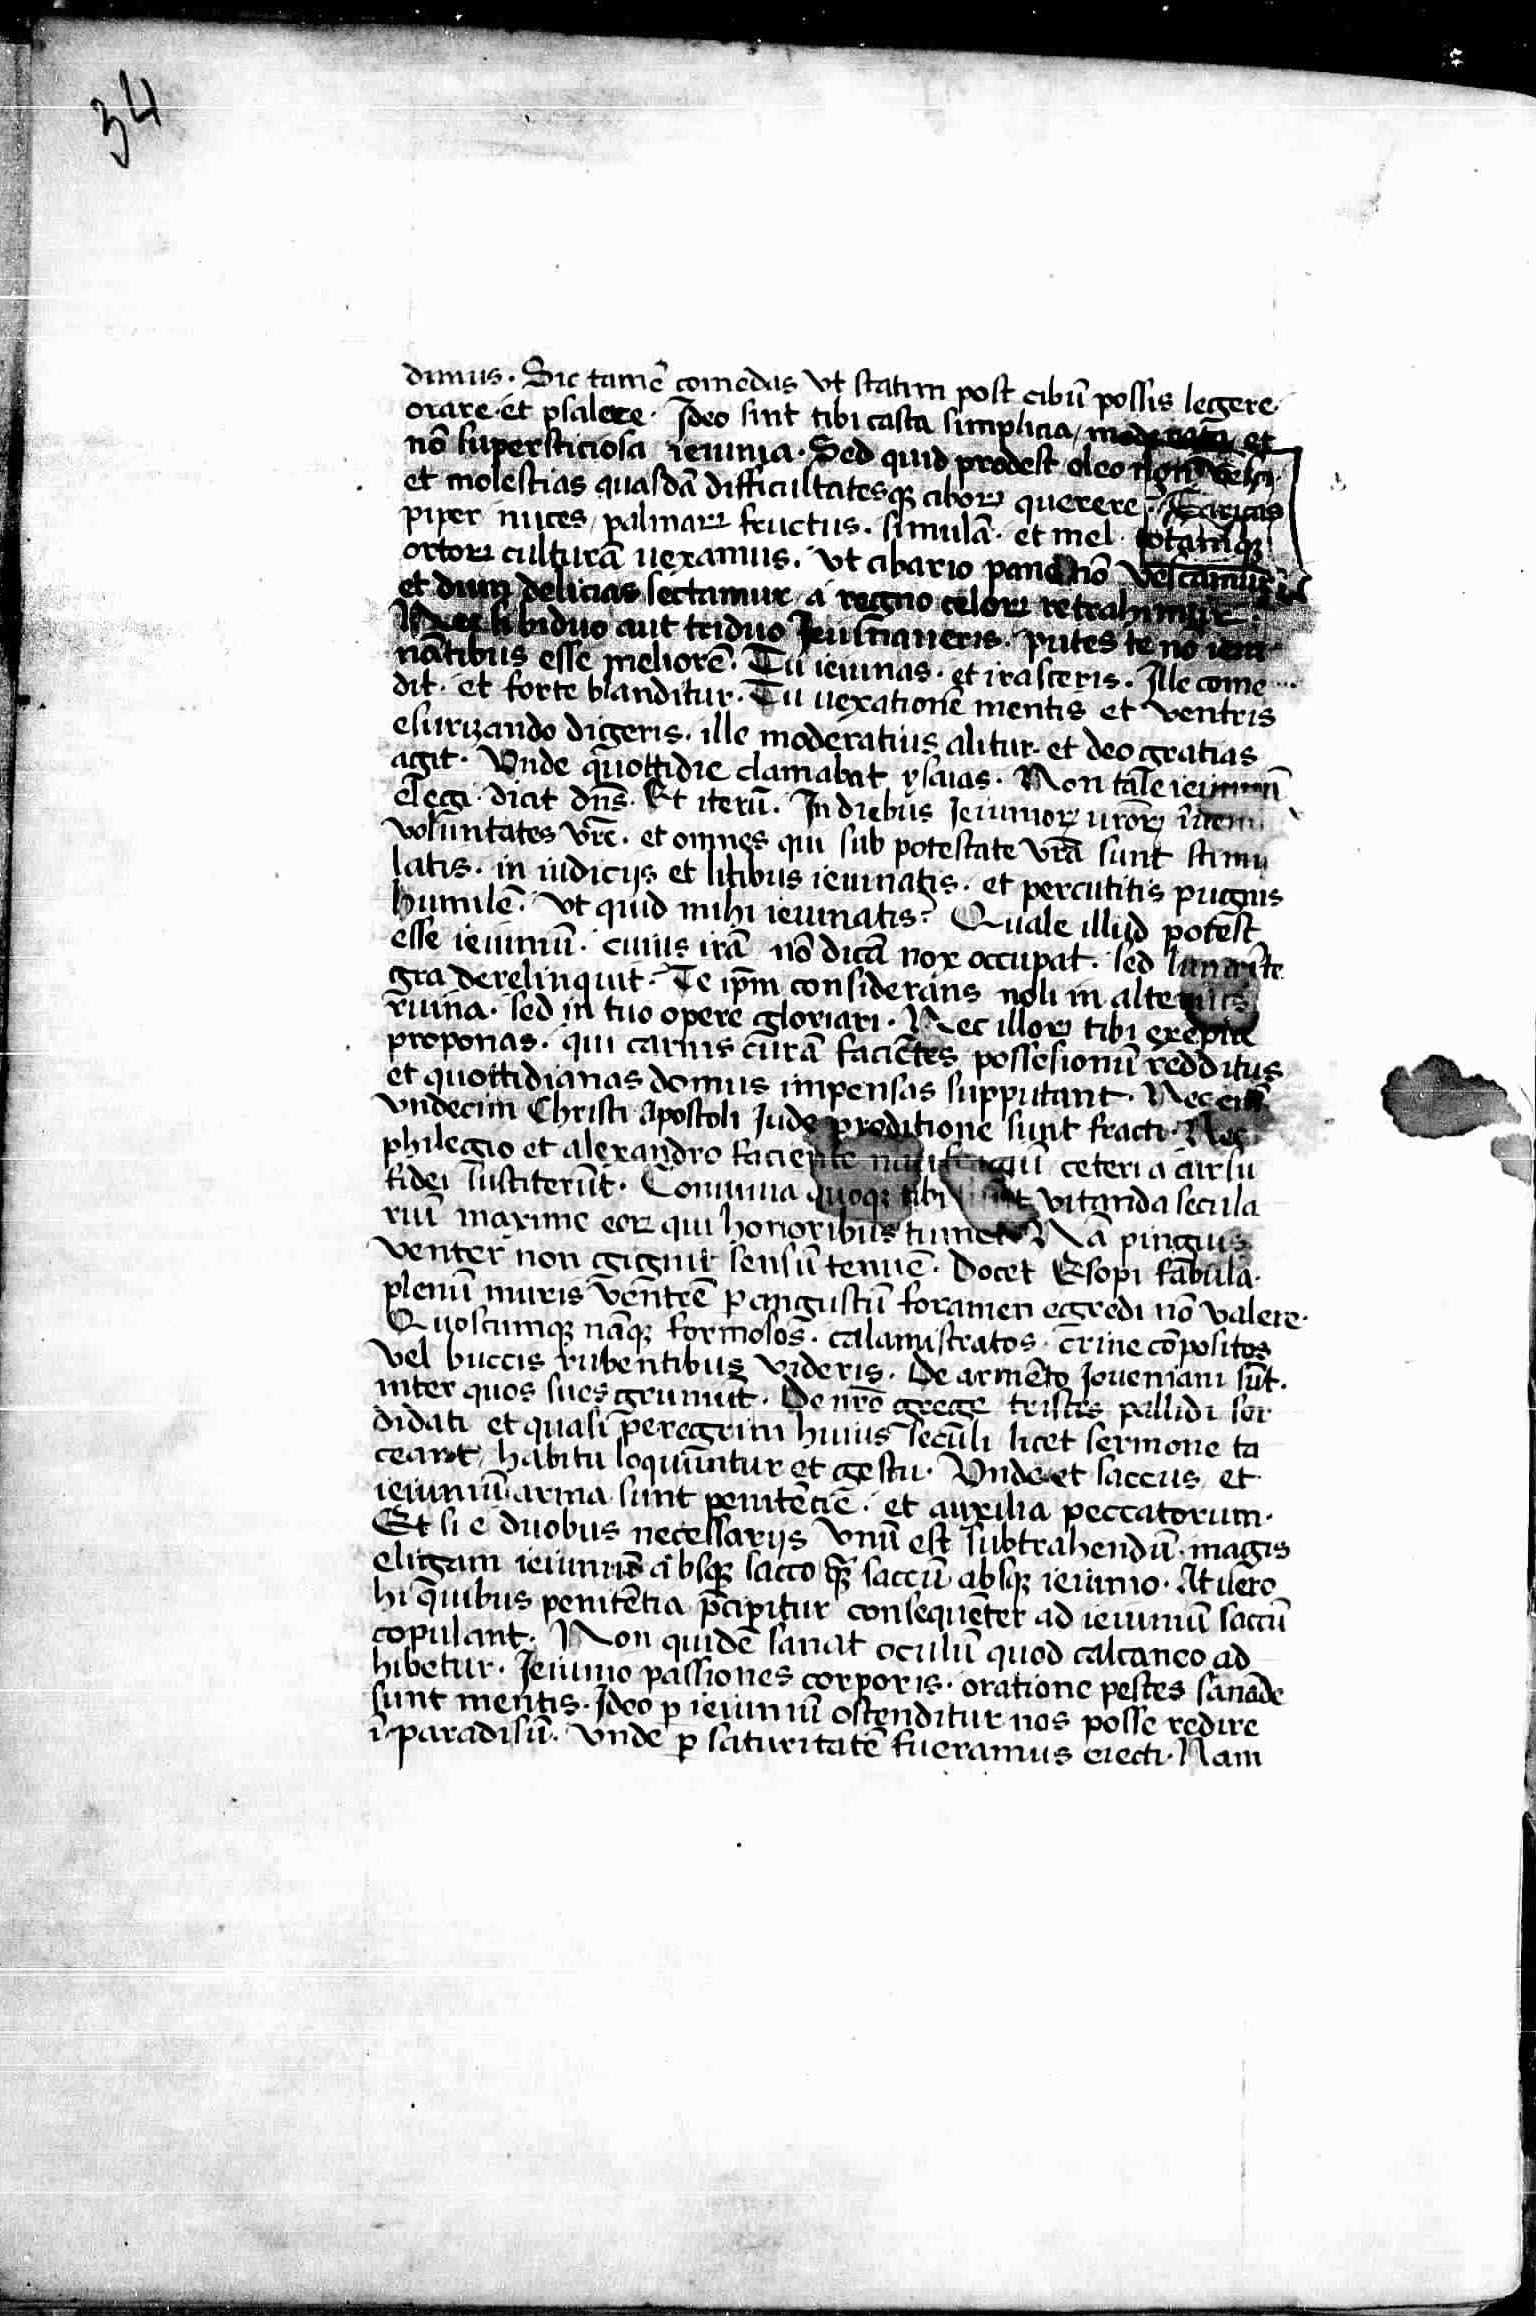 34
dimus. Sic tamē comedas vt statim post cibū possis legere.
orare. et psalere. Ideo sint tibi casta simplicia / moderata et
nō supersticiosa ieiunia. Sed quid prodest oleo nō vesci.
et molestias quasdā difficultatesqꝫ ciboꝝ querere. Caricas
piper nuces / palmaꝝ fructus. simulā. et mel. totamqꝫ
ortoꝝ culturā uexamus. vt cibario pane nō vescamur
et dum delicias sectamur / a regno celoꝝ retrahimur.
Nec si biduo aut triduo Ieiunaueris. putes te nō ieiu
nātibus esse meliorē. Tu ieiunas. et irasceris. Ille come
dit. et forte blanditur. Tu uexationē mentis et ventris
esurizando digeris. ille moderatius alitur. et deo gratias
agit. Vnde quottidie clamabat ysaias. Non tale ieiuniū
elegi. dicit dn̄s. Et iterū. In diebus Ieiunioꝝ ur̄oꝝ
voluntates vr̄e. et omnes qui sub potestate vr̄a sunt stimu
latis. in iudicijs et litibus ieiunatis. et percutitis pugnis
humilē. Vt quid mihi ieiunatis? Quale illud potest
esse ieiuniū. cuius irā nō dicā nox occupat. sed luna īte
gra derelinquit. Te ip̄m considerans noli in alterius
ruina. sed in tuo opere gloriari. Nec illoꝝ tibi exepla
proponas. qui carnis curā faciētes possesionū redditus
et quottidianas domus impensas supputant. Nec eī
vndecim Christi Apostoli Iude proditione sunt fracti. Nec
philegio et alexandro faciente naufragiū ceteri a cursu
fidei sustiterūt. Conuiuia quoqꝫ tibi sint vitanda secula
riū maxime eoꝝ qui honoribus tument Nā pinguis
venter non gignit sensū tenuē. Docet Esopi fabula.
plenū muris ventrē ꝑ angustū foramen egredi nō valere.
Quoscumqꝫ nāqꝫ formosos. calamistratos. crine cōpositos
vel buccis rubentibus videris. De armēto Ioueniani sūt.
inter quos sues grunniūt. De nr̄o grege tristes pallidi sor
didati et quasi peregrini huius seculi licet sermone ta
ceant / habitu loquūntur et gestu. Vnde et saccus / et
ieiuniū arma sunt penitēcie. et auxilia peccatorum.
Et si e duobus necessarijs vnū est subtrahendū. magis
eligam ieiuniū absqꝫ sacco qꝫ saccū absqꝫ ieiunio. At uero
hi quibus penitētia p̄cipitur consequēter ad ieiuniū saccū
copulant. Non quidē sanat oculū quod calcaneo ad
hibetur. Ieiunio passiones corporis. oratione pestes sanāde
sunt mentis. Ideo ꝑ ieiuniū ostenditur nos posse redire
ī paradisū. vnde ꝑ saturitatē fueramus eiecti. Nam